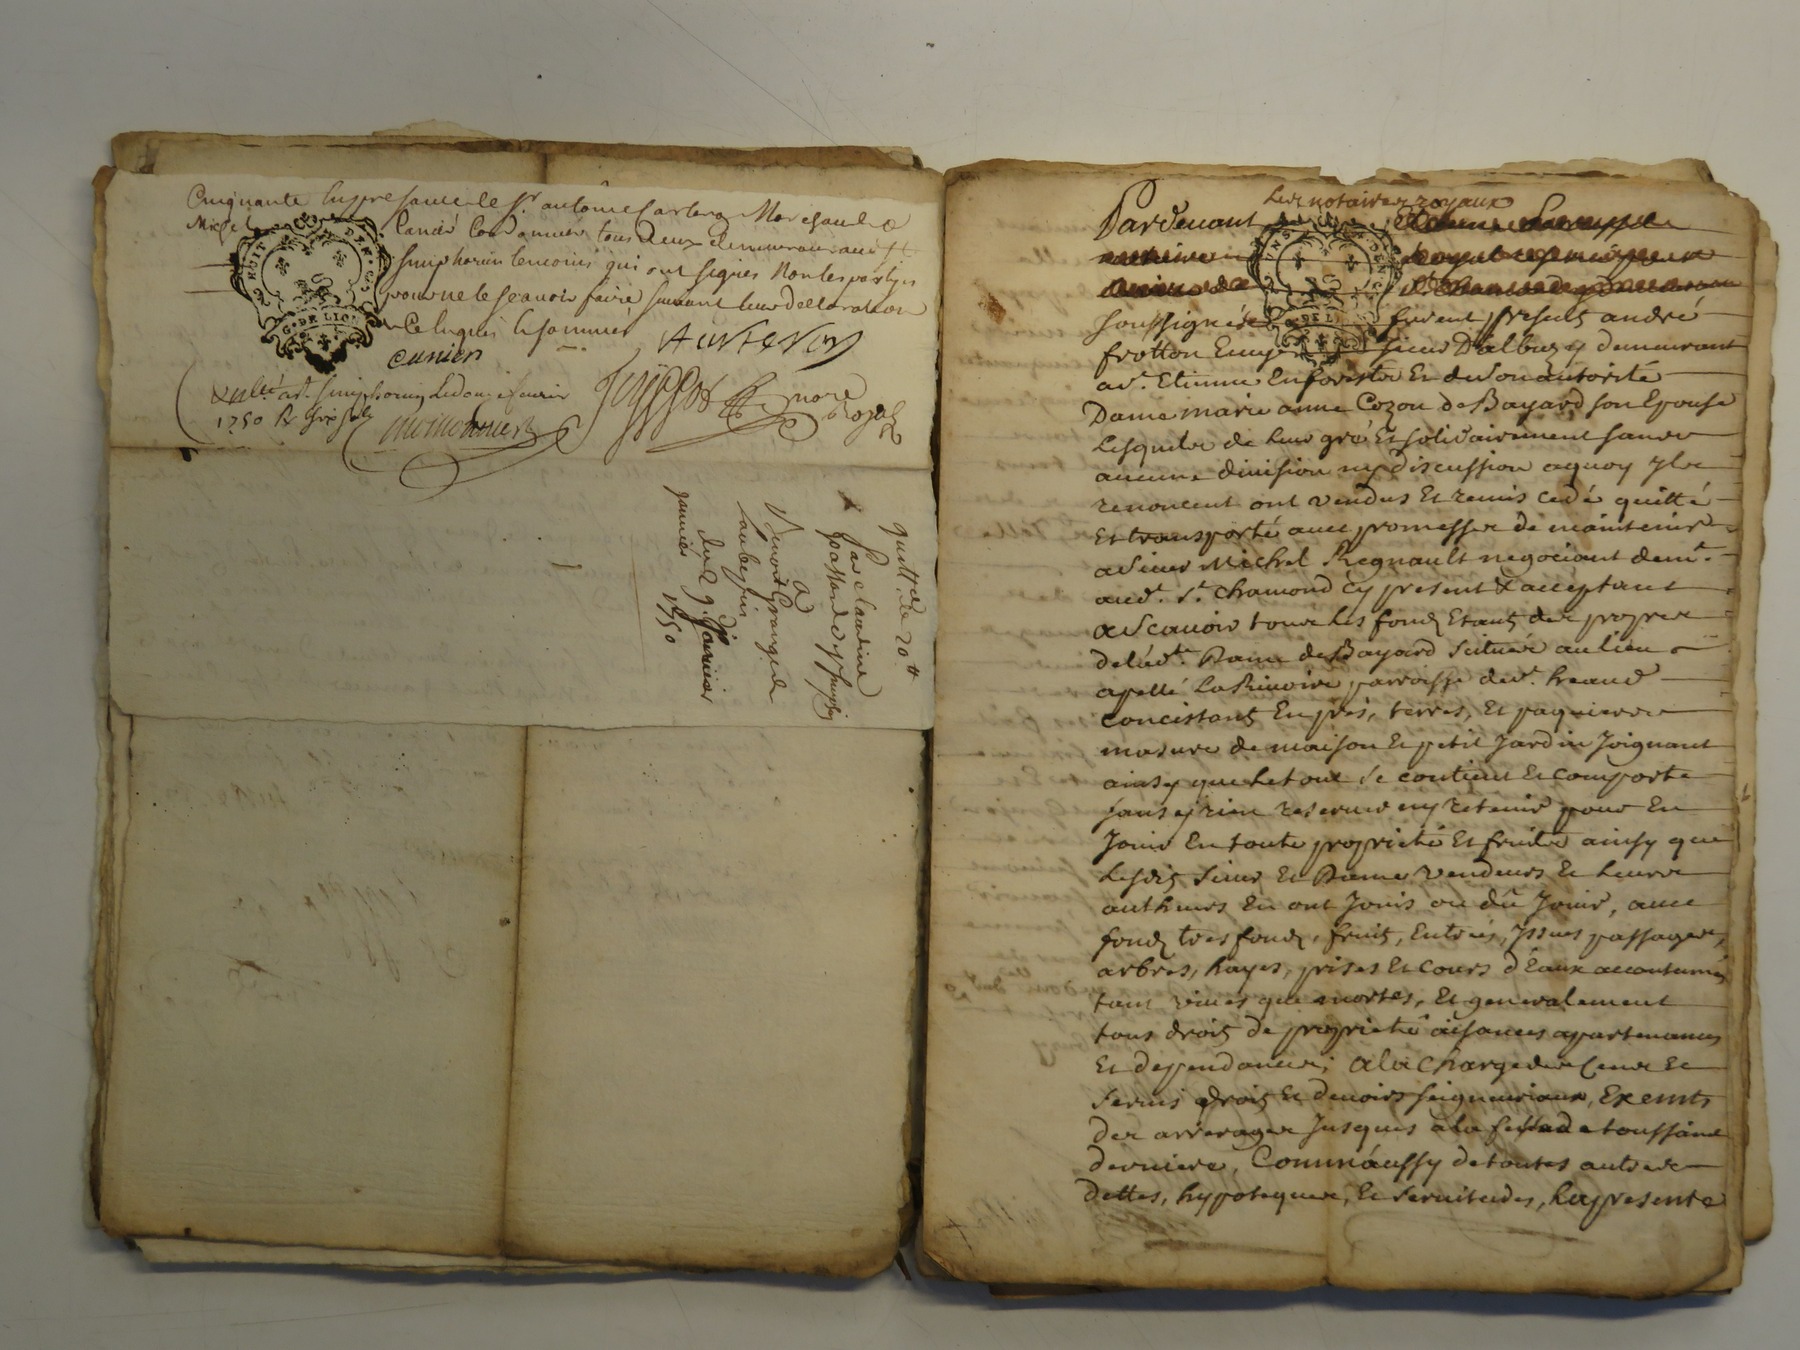 Cinquante En presance de Sr antoine Carteron Marchand &
Michel Cancié Cordonnier tous deux demeurans aud. St
Simphorien temoins qui ont signés Non les partyes
pour ne le scavoir faire suivant leur declaration
De ce Enquis & sommés
HUIT DEN. G. DE LION
Cunien
Carteron
Controllé a St. Simphorien Le douze feurier
1750 R
nore Royal
quittce de 20 ₶
par claudine
A
Benoit Grangier
du 9 janvier
janvier 1750
Les notaires royaux
Pardevant
DEN. G. DE LION
soussignés furent presents andré
frotton Ecuyer sieur D'albuzy demeurant
a St. Etienne En forest & de son autorité
Dame marie anne Cozon de Bayard son Epouse
Lesquels de leur gré Et solidairement sans
aucune division ny discussion a quoy ils
renoncent ont vendus Et remis cedé quitté
Et transporté avec promesse de maintenir
a Sieur Michel Regnault negociant demt.
aud. St. Chamond Cy present & acceptant
a Scavoir tous les fonds Etants des propres
de lad.te Dame de Bayard scitués au lieu
apellé La Rivoire parroisse de St. heand
concistants En prés, terres, Et paquiers
masure de maison Et petit Jardin Joignant
ainsy que le tout se contient Et comporte
sans y rien reserver ny retenir pour En
Jouir En toute proprieté Et fruits ainsy que
Lesdits Sieur Et Dame vendeurs Et leurs
autheurs En ont Jouis ou dû Jouir, avec
fonds tres fonds, fruits, Entrées, Issues passages,
arbres, hayes, prises Et cours d'Eaux accoutumés
tant vives que mortes, Et generalement
tous droits de proprieté aisances apartenances
Et dependances; a la charge des Cens Et
servis droits Et devoirs seigneuriaux, Exempts
des arrerages Jusques a la feste de toussaint
derniere, Comm'aussy de toutes autres
dettes, hypoteques, Et servitudes, La presente